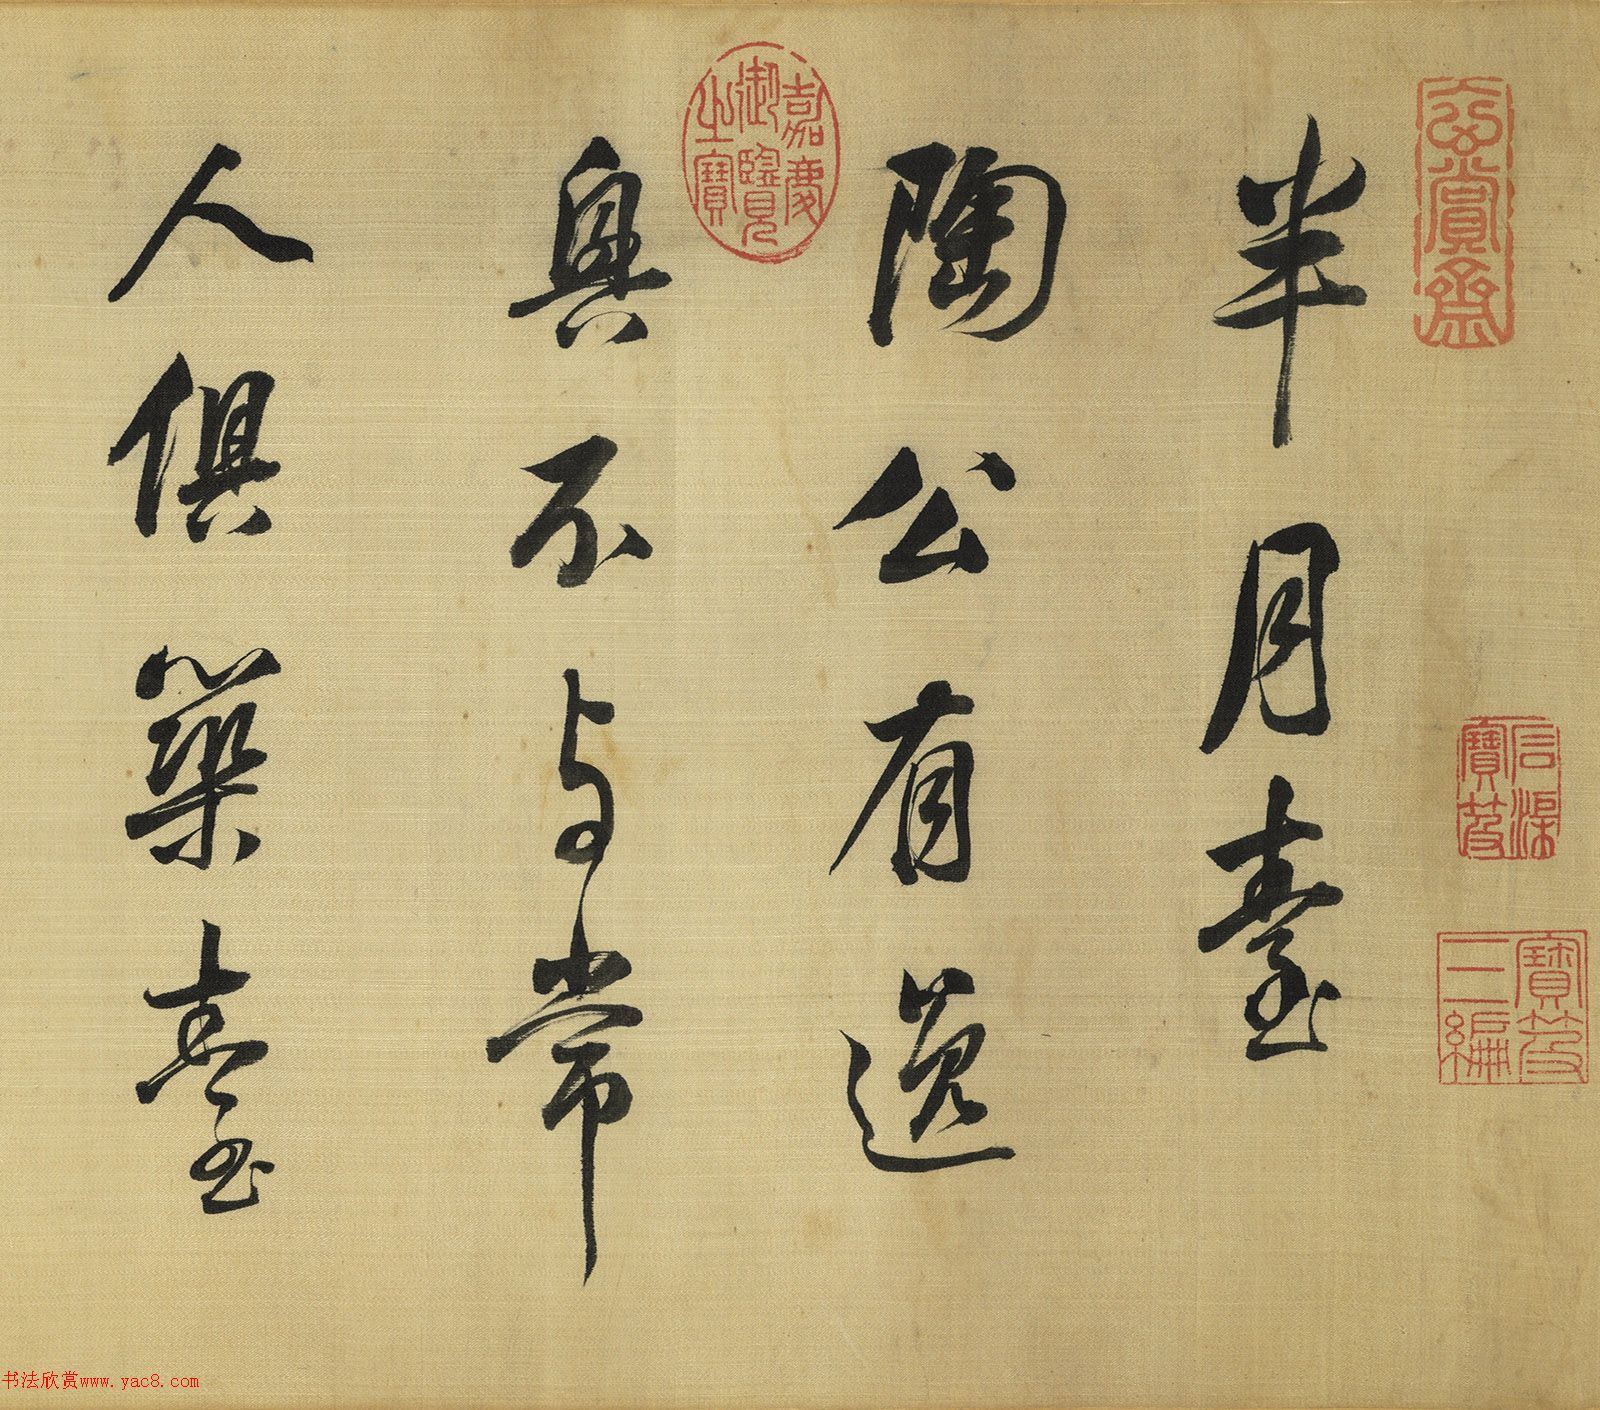 半月臺
陶公有逸
興不與常
人俱築臺
嘉慶御覽之寶
玄賞齋
石渠寶笈
寶笈三編
书法欣赏www.yac8.com